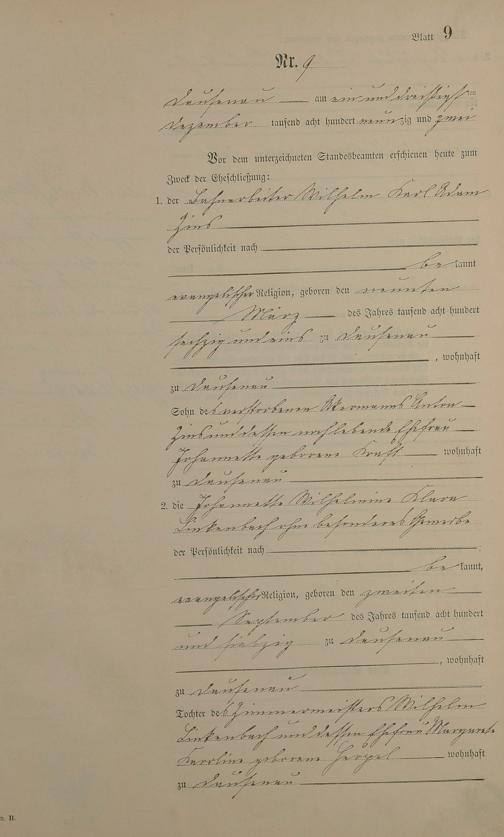 Blatt 9
Nr. 9
Dausenau am einunddreißigsten
Dezember tausend acht hundert neunzig und zwei
Vor dem unterzeichneten Standesbeamten erschienen heute zum
Zweck der Eheschließung:
1. der Bahnarbeiter Wilhelm Karl Adam
Zins
der Persönlichkeit nach
be kannt,
evangelischer Religion, geboren den neunten
März des Jahres tausend acht hundert
sechzig und eins zu Dausenau
, wohnhaft
zu Dausenau
Sohn des verstorbenen Anton
Zins und dessen noch lebende Ehefrau
Johannette geborene Kraft wohnhaft
zu Dausenau
2. die Johannette Wilhelmine Klara
Linkenbach ohne besonderes Gewerbe
der Persönlichkeit nach
be kannt,
evangelischer Religion, geboren den zweiten
September des Jahres tausend acht hundert
und siebzig zu Dausenau
, wohnhaft
zu Dausenau
Tochter des Zimmermeisters Wilhelm
Linkenbach und dessen Ehefrau
Karoline geborene wohnhaft
zu Dausenau